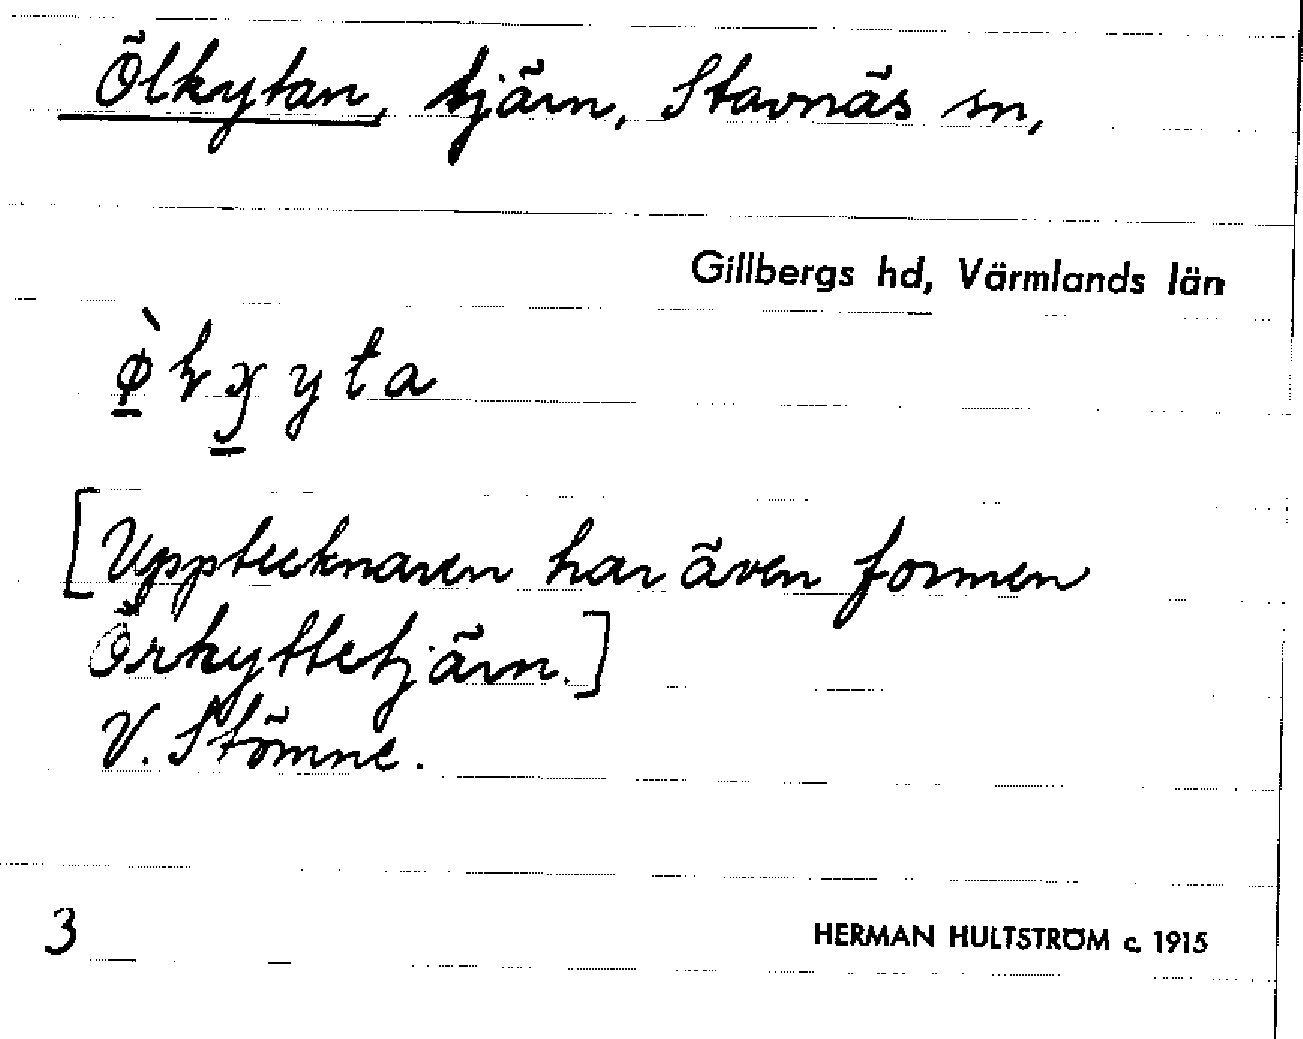 Ölkytan, tjärn, Stavnäs sn,
Gillbergs hd, Värmlands län
[Upptecknaren har även formen
Örkyttetjärn.]
V. Stömne.
3
HERMAN HULTSTRÖM c. 1915